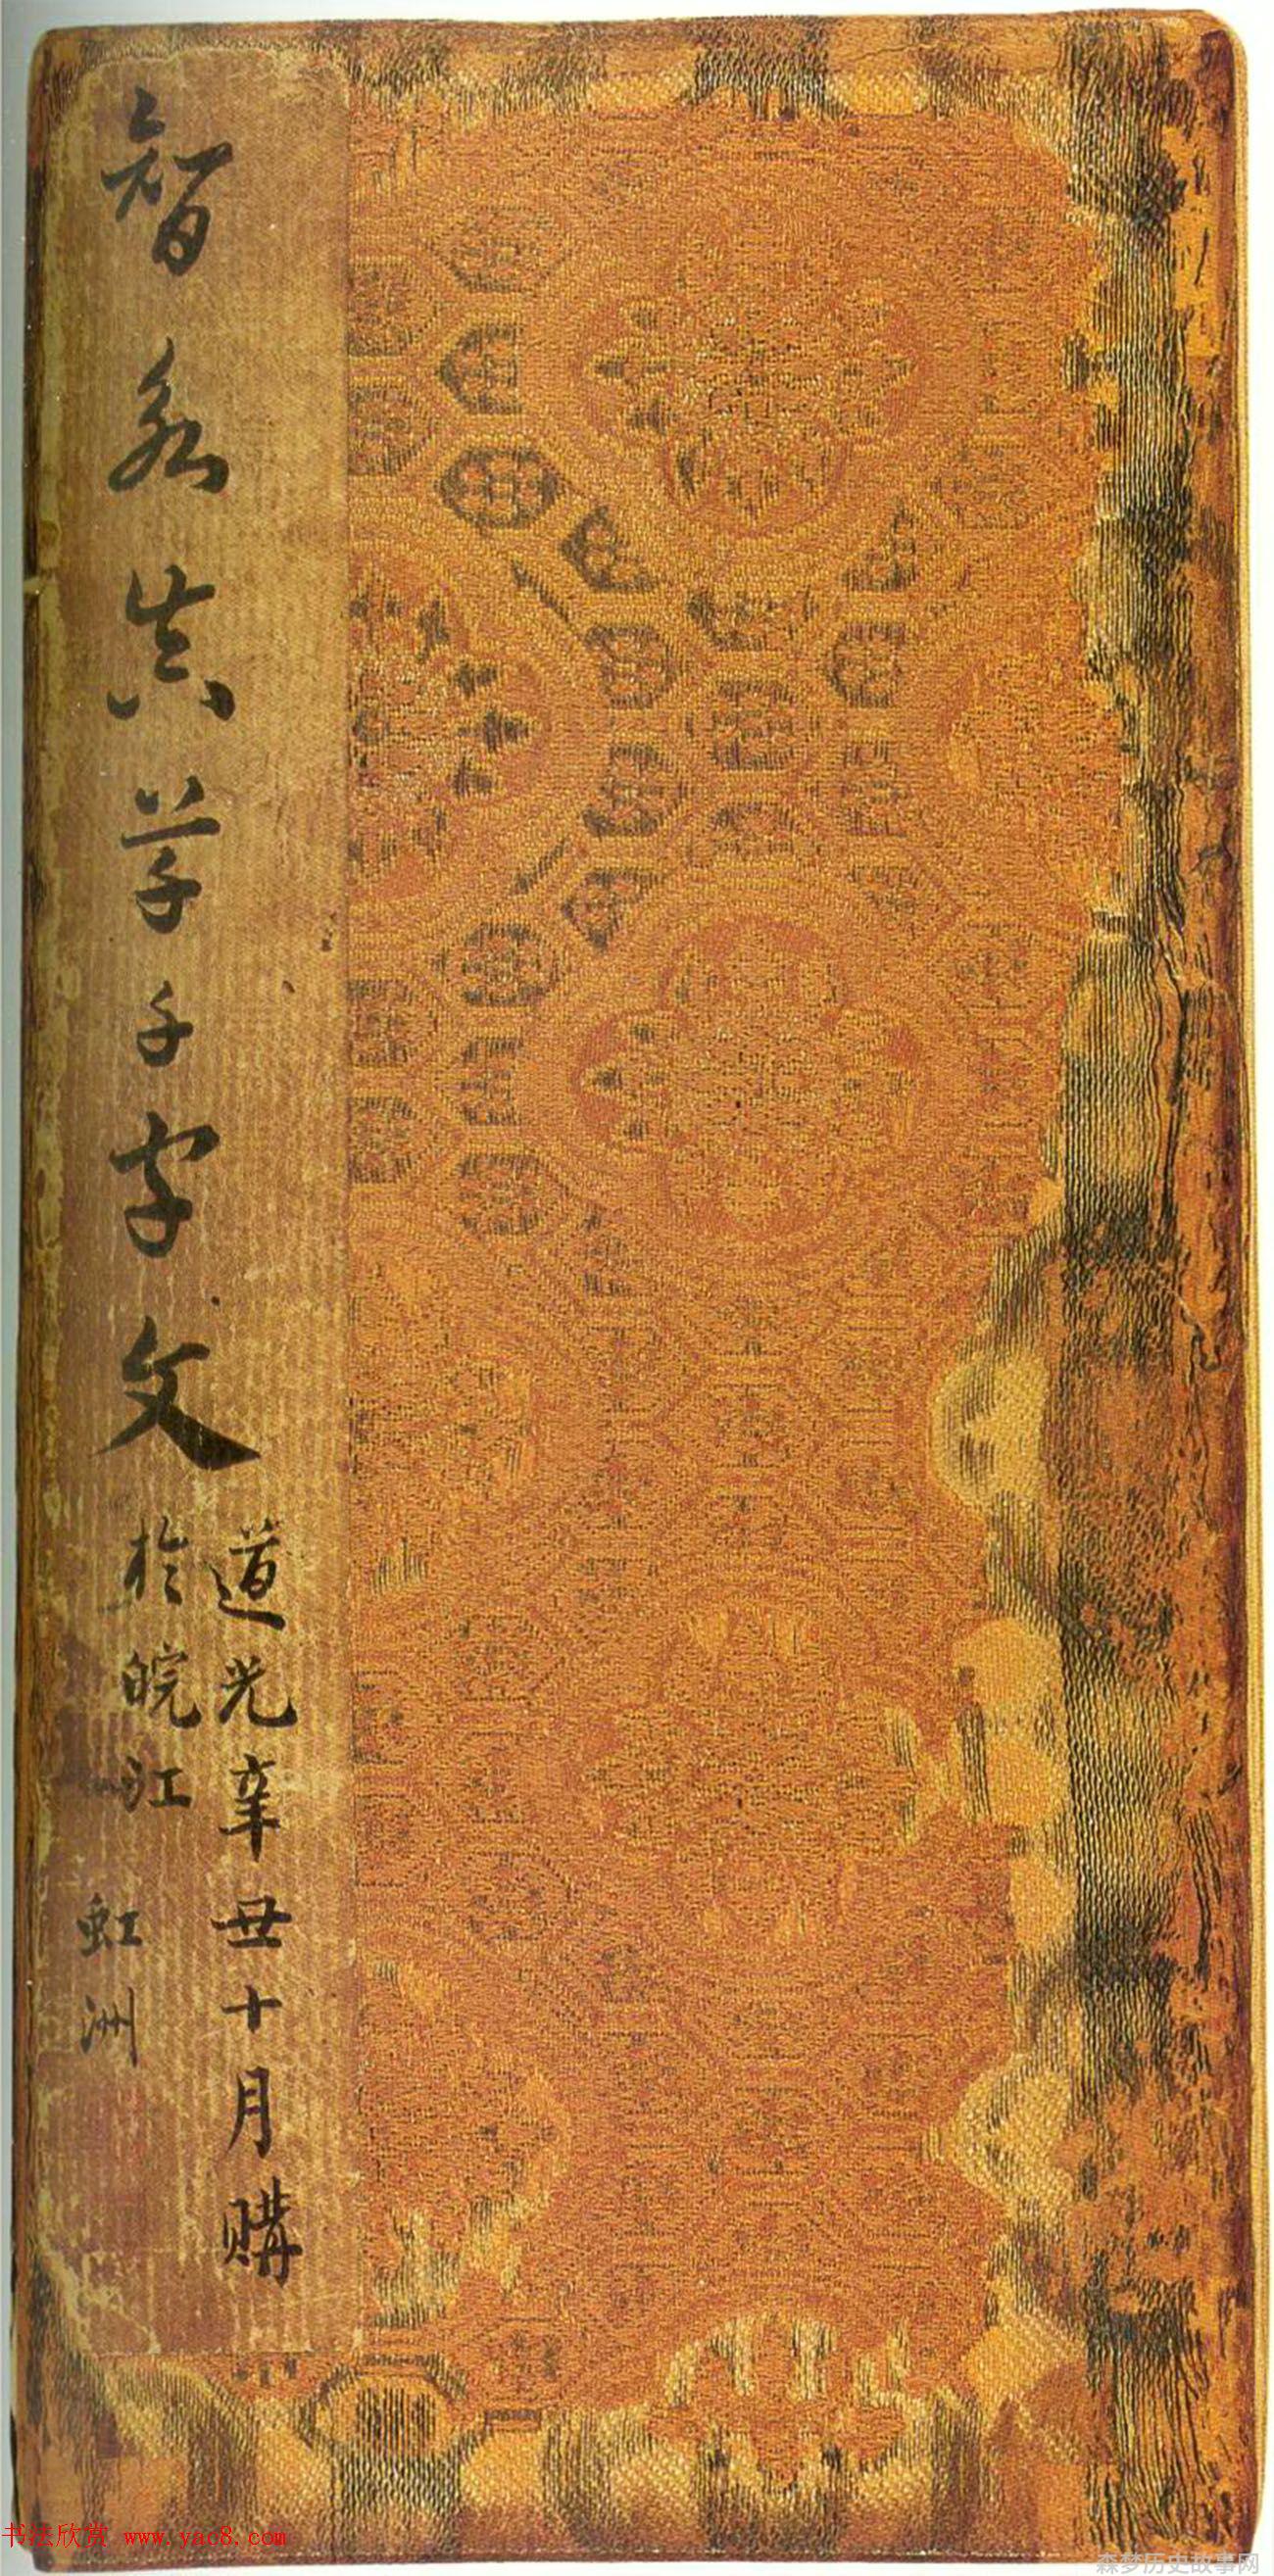 智永真草千字文
道光辛丑十月購
於皖江
虹洲
书法欣赏 www.yac8.com
森梦历史故事网